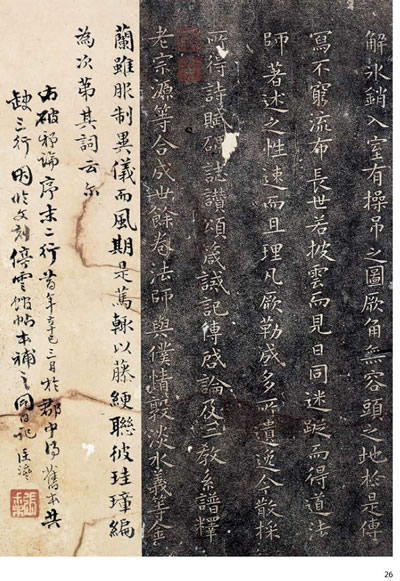 解冰銷入室有操吊之圖厥角無容頭之地於是傳
寫不窮流布長世若披雲而見日同迷蹤而得道法
師著述之性速而且理凡厥勒成多所遺逸今散採
所得詩賦碑誌讚頌箴誡記傳啓論及三教系譜釋
老宗源等合成卅餘卷法師與僕情敦淡水義等金
蘭雖服制異儀而風期是篤輒以藤綆聯彼珪璋編
為次第其詞云尔
右破邪論序末二行昔年辛巳三月於郡中得舊本共
缺三行因以文刻停雲館帖本補之同日記
26